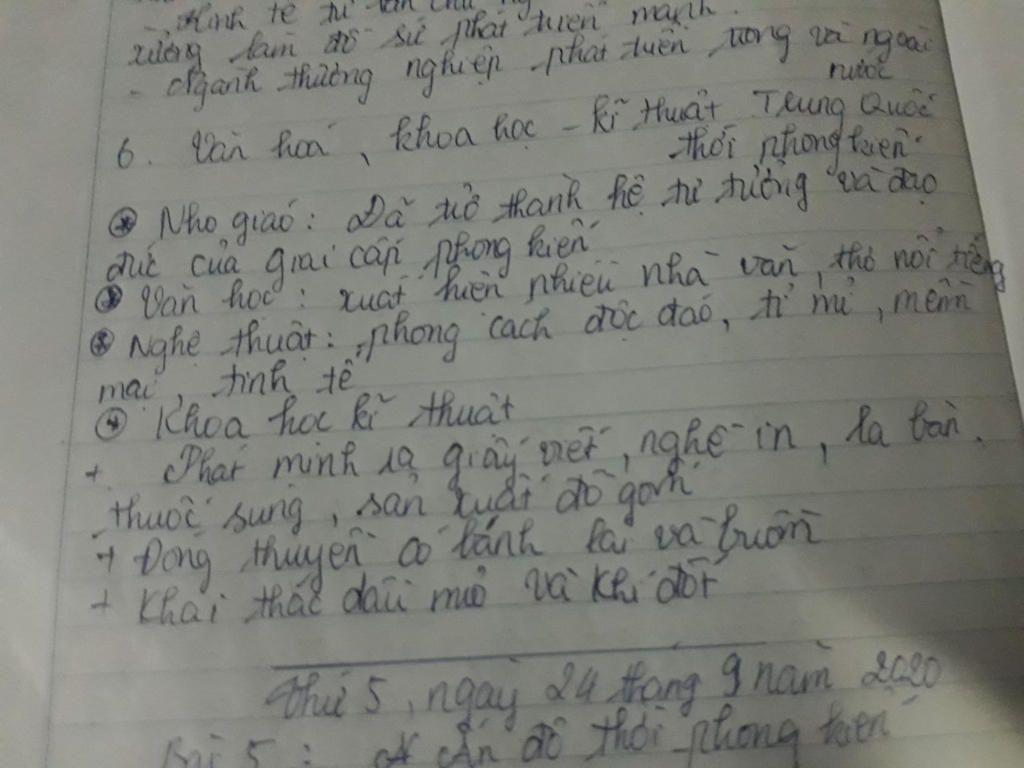 - Kinh tế tư bản chủ
xưởng làm đồ sứ phát triển mạnh.
- Ngành thương nghiệp phát triển trong và ngoài
nước
6. Văn hoá, khoa học - kĩ thuật Trung Quốc
thời phong kiến.
Nho giáo: Đã trở thành hệ tư tưởng và đạo
đức của giai cấp phong kiến
Văn học: xuất hiện nhiều nhà văn, thơ nổi tiếng
Nghệ thuật: phong cách độc đáo, tỉ mỉ, mềm
mại, tinh tế
Khoa học kĩ thuật
+ Phát minh ra giấy viết, nghề in, la bàn,
thuốc súng, sản xuất đồ gốm
+ Đóng thuyền có bánh lái và buồm
+ Khai thác dầu mỏ và khí đốt
Thứ 5, ngày 24 tháng 9 năm 2020
Bài 5: Ấn độ thời phong kiến